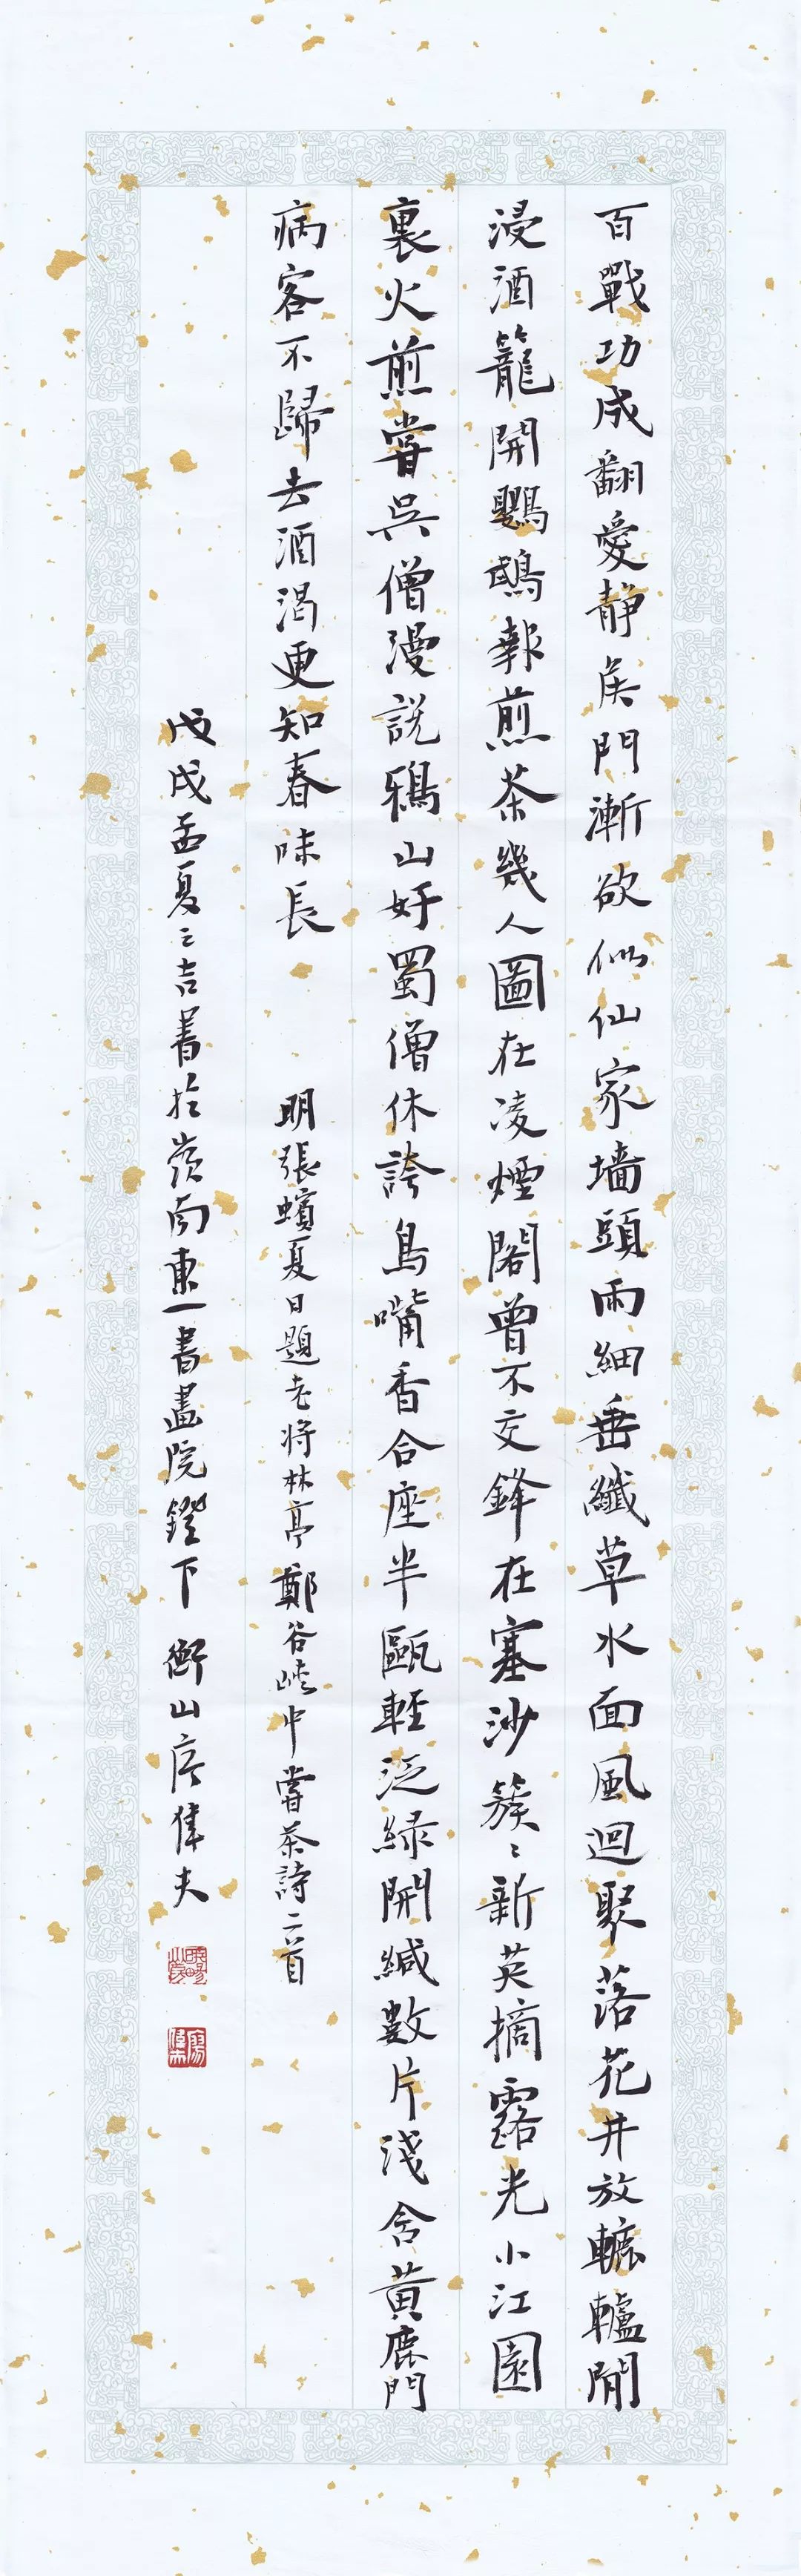 百戰功成翻愛靜矦門漸欲似仙家墻頭雨細垂纖草水面風迴聚落花井放轆轤閒
浸酒籠開鸚鵡報煎茶幾人圖在凌煙閣曾不交鋒在塞沙簇〻新英摘露光小江園
裏火煎嘗吳僧漫說鴉山好蜀僧休誇鳥嘴香合座半甌輕泛綠開緘數片淺含黃鹿門
病客不歸去酒渴更知春味長
明張蠙夏日題老將林亭鄭谷峽中嘗茶詩二首
戊戌孟夏之吉書於嶺南東一書畫院鐙下 衡山唐偉夫